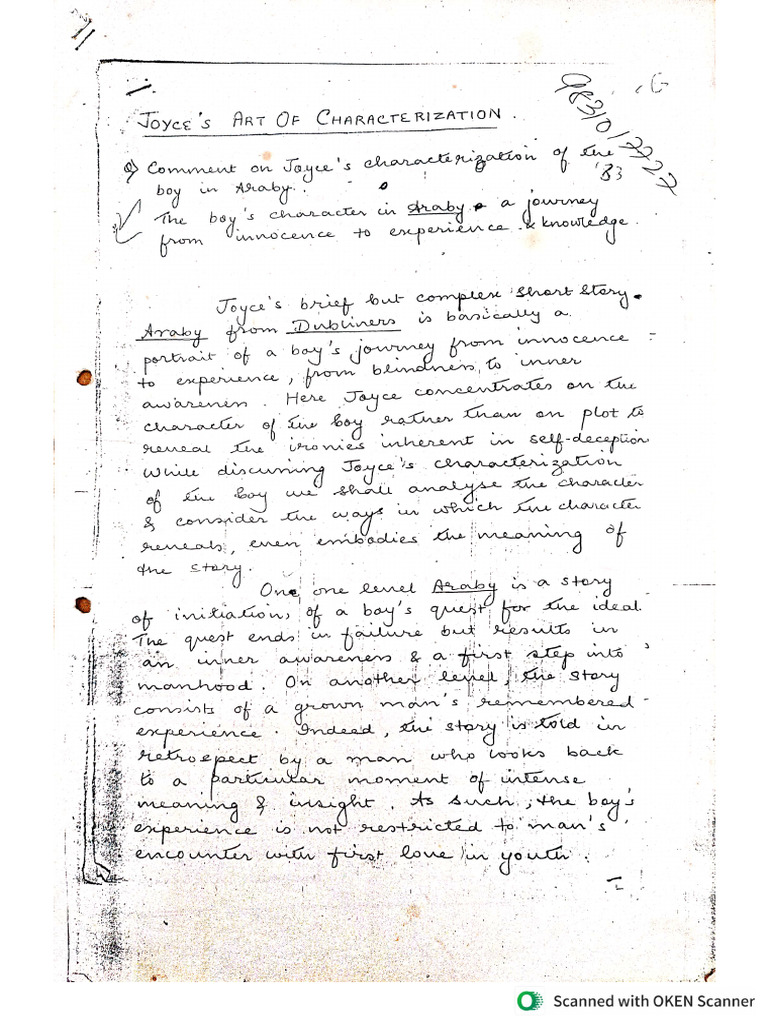 JOYCE'S ART OF CHARACTERIZATION.
Q) Comment on Joyce's characterization of the '83
boy in Araby.
The boy's character in Araby a journey
from innocence to experience & knowledge.
Joyce's brief but complex short story
Araby from Dubliners is basically a
portrait of a boy's journey from innocence
to experience, from blindness to inner
awareness. Here Joyce concentrates on the
character of the boy rather than on plot to
reveal the ironies inherent in self-deception
While discussing Joyce's characterization
of the boy we shall analyse the character
& consider the ways in which the character
reveals, even embodies the meaning of
the story.
One one level Araby is a story
of initiation, of a boy's quest for the ideal.
The quest ends in failure but results in
an inner awareness & a first step into
manhood. On another level, the story
consists of a grown man's remembered
experience. Indeed, the story is told in
retrospect by a man who looks back
to a particular moment of intense
meaning & insight. As such, the boy's
experience is not restricted to man's
encounter with first love in youth.
Scanned with OKEN Scanner